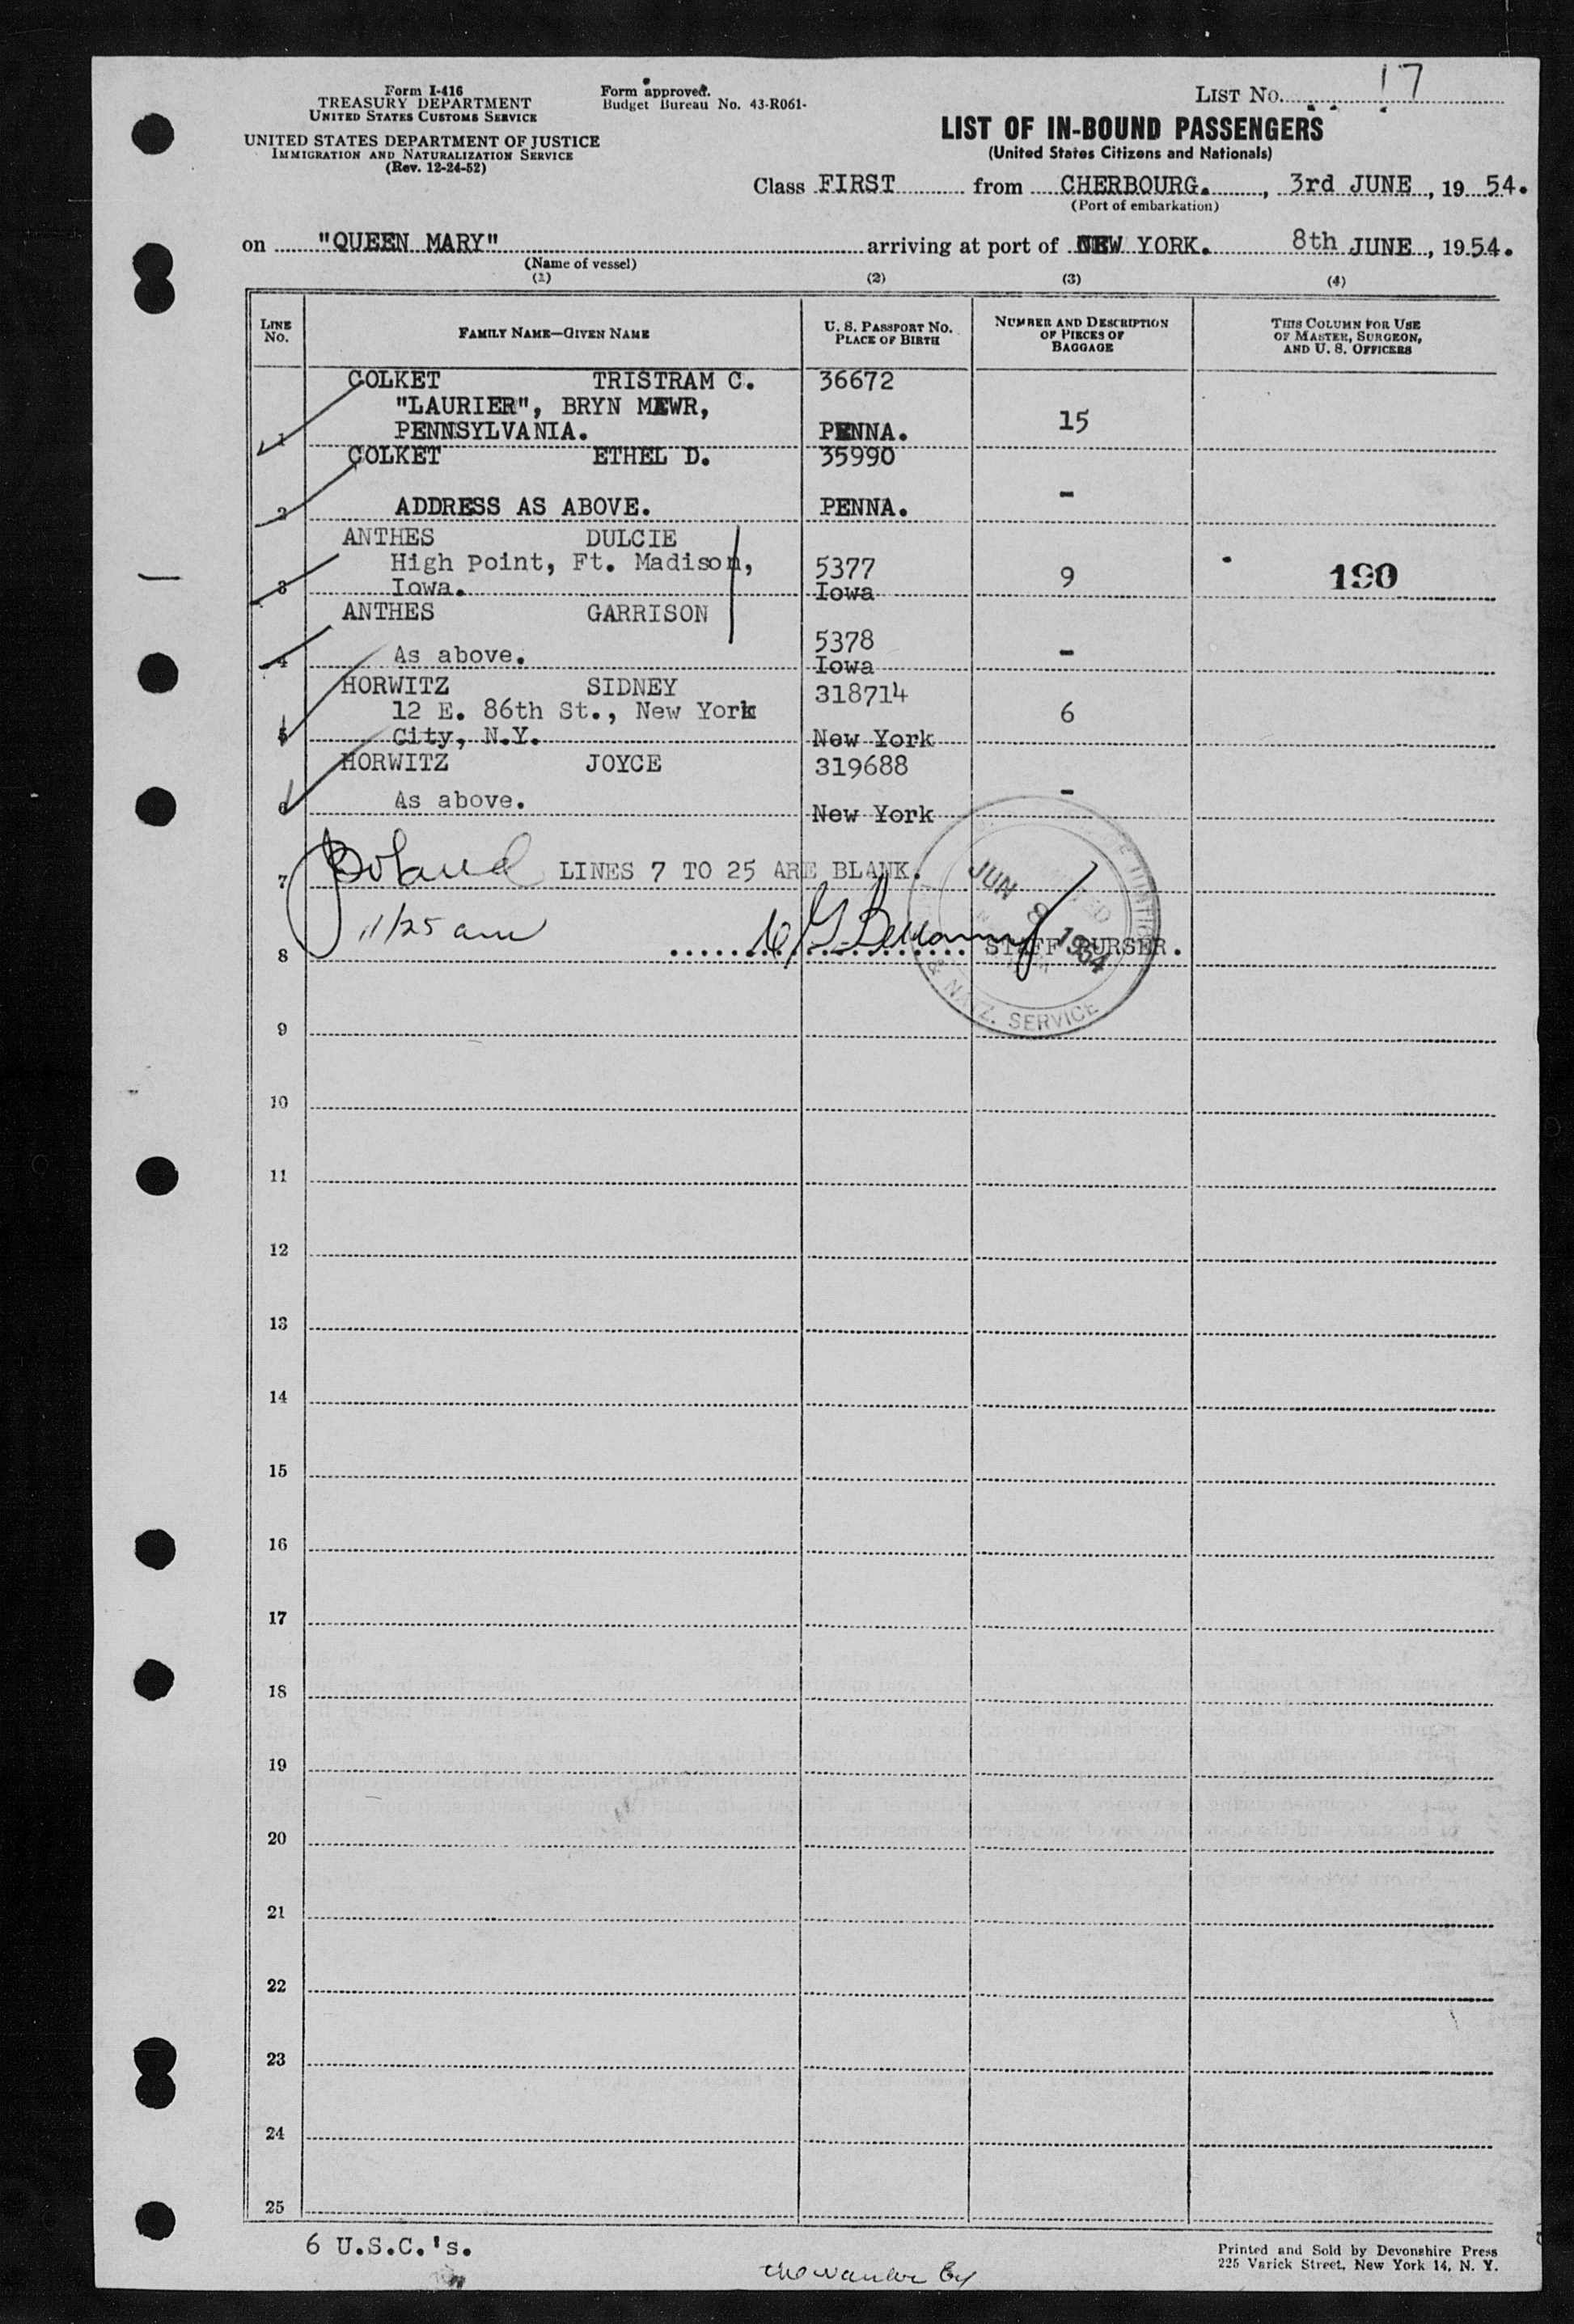 Form I-416
TREASURY DEPARTMENT
UNITED STATES CUSTOMS SERVICE
UNITED STATES DEPARTMENT OF JUSTICE
IMMIGRATION AND NATURALIZATION SERVICE
(Rev. 12-24-52)
Form approved.
Budget Bureau No. 43-R061-
LIST NO. 17
LIST OF IN-BOUND PASSENGERS
(United States Citizens and Nationals)
Class FIRST from CHERBOURG. , 3rd JUNE , 19 54.
(Port of embarkation)
on "QUEEN MARY" arriving at port of NEW YORK. 8th JUNE , 1954.
(Name of vessel)
(1) (2) (3) (4)
LINE NO. FAMILY NAME—GIVEN NAME U. S. PASSPORT NO. PLACE OF BIRTH NUMBER AND DESCRIPTION OF PIECES OF BAGGAGE THIS COLUMN FOR USE OF MASTER, SURGEON, AND U. S. OFFICERS
COLKET TRISTRAM C. 36672
"LAURIER", BRYN MEWR, 15
1 PENNSYLVANIA. PENNA.
COLKET ETHEL D. 35990
2 ADDRESS AS ABOVE. PENNA. -
ANTHES DULCIE
High Point, Ft. Madison, 5377 9 190
3 Iowa. Iowa
ANTHES GARRISON
5378
4 As above. Iowa -
HORWITZ SIDNEY 318714
12 E. 86th St., New York 6
5 City, N.Y. New York
HORWITZ JOYCE 319688
6 As above. New York -
7 Boland LINES 7 TO 25 ARE BLANK.
11/25 am
8 STAFF PURSER.
JUN 8 1954
& NATZ. SERVICE
9
10
11
12
13
14
15
16
17
18
19
20
21
22
23
24
25
6 U.S.C.'s.
Printed and Sold by Devonshire Press
225 Varick Street, New York 14, N. Y.